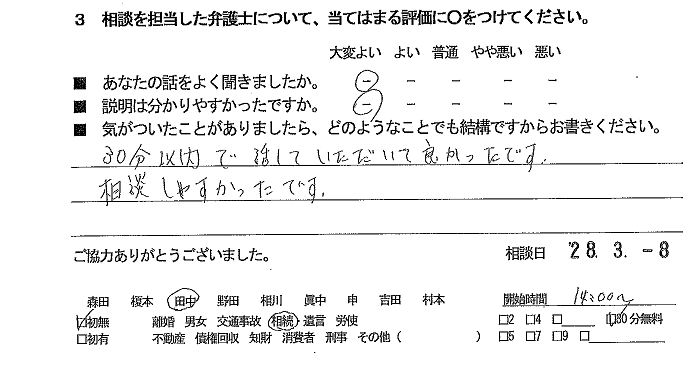 3 相談を担当した弁護士について、当てはまる評価に〇をつけてください。
大変よい よい 普通 やや悪い 悪い
■ あなたの話をよく聞きましたか。 - - - - -
■ 説明は分かりやすかったですか。 - - - - -
■ 気がついたことがありましたら、どのようなことでも結構ですからお書きください。
30分以内で話していただいて良かったです。
相談しやすかったです。
ご協力ありがとうございました。 相談日 '28.3.-8
森田 榎本 田中 野田 相川 眞中 申 吉田 村本 開始時間 14:00～
□初無 離婚 男女 交通事故 相続・遺言 労使 □2 □4 □____ □30分無料
□初有 不動産 債権回収 知財 消費者 刑事 その他( ) □5 □7 □9 □____